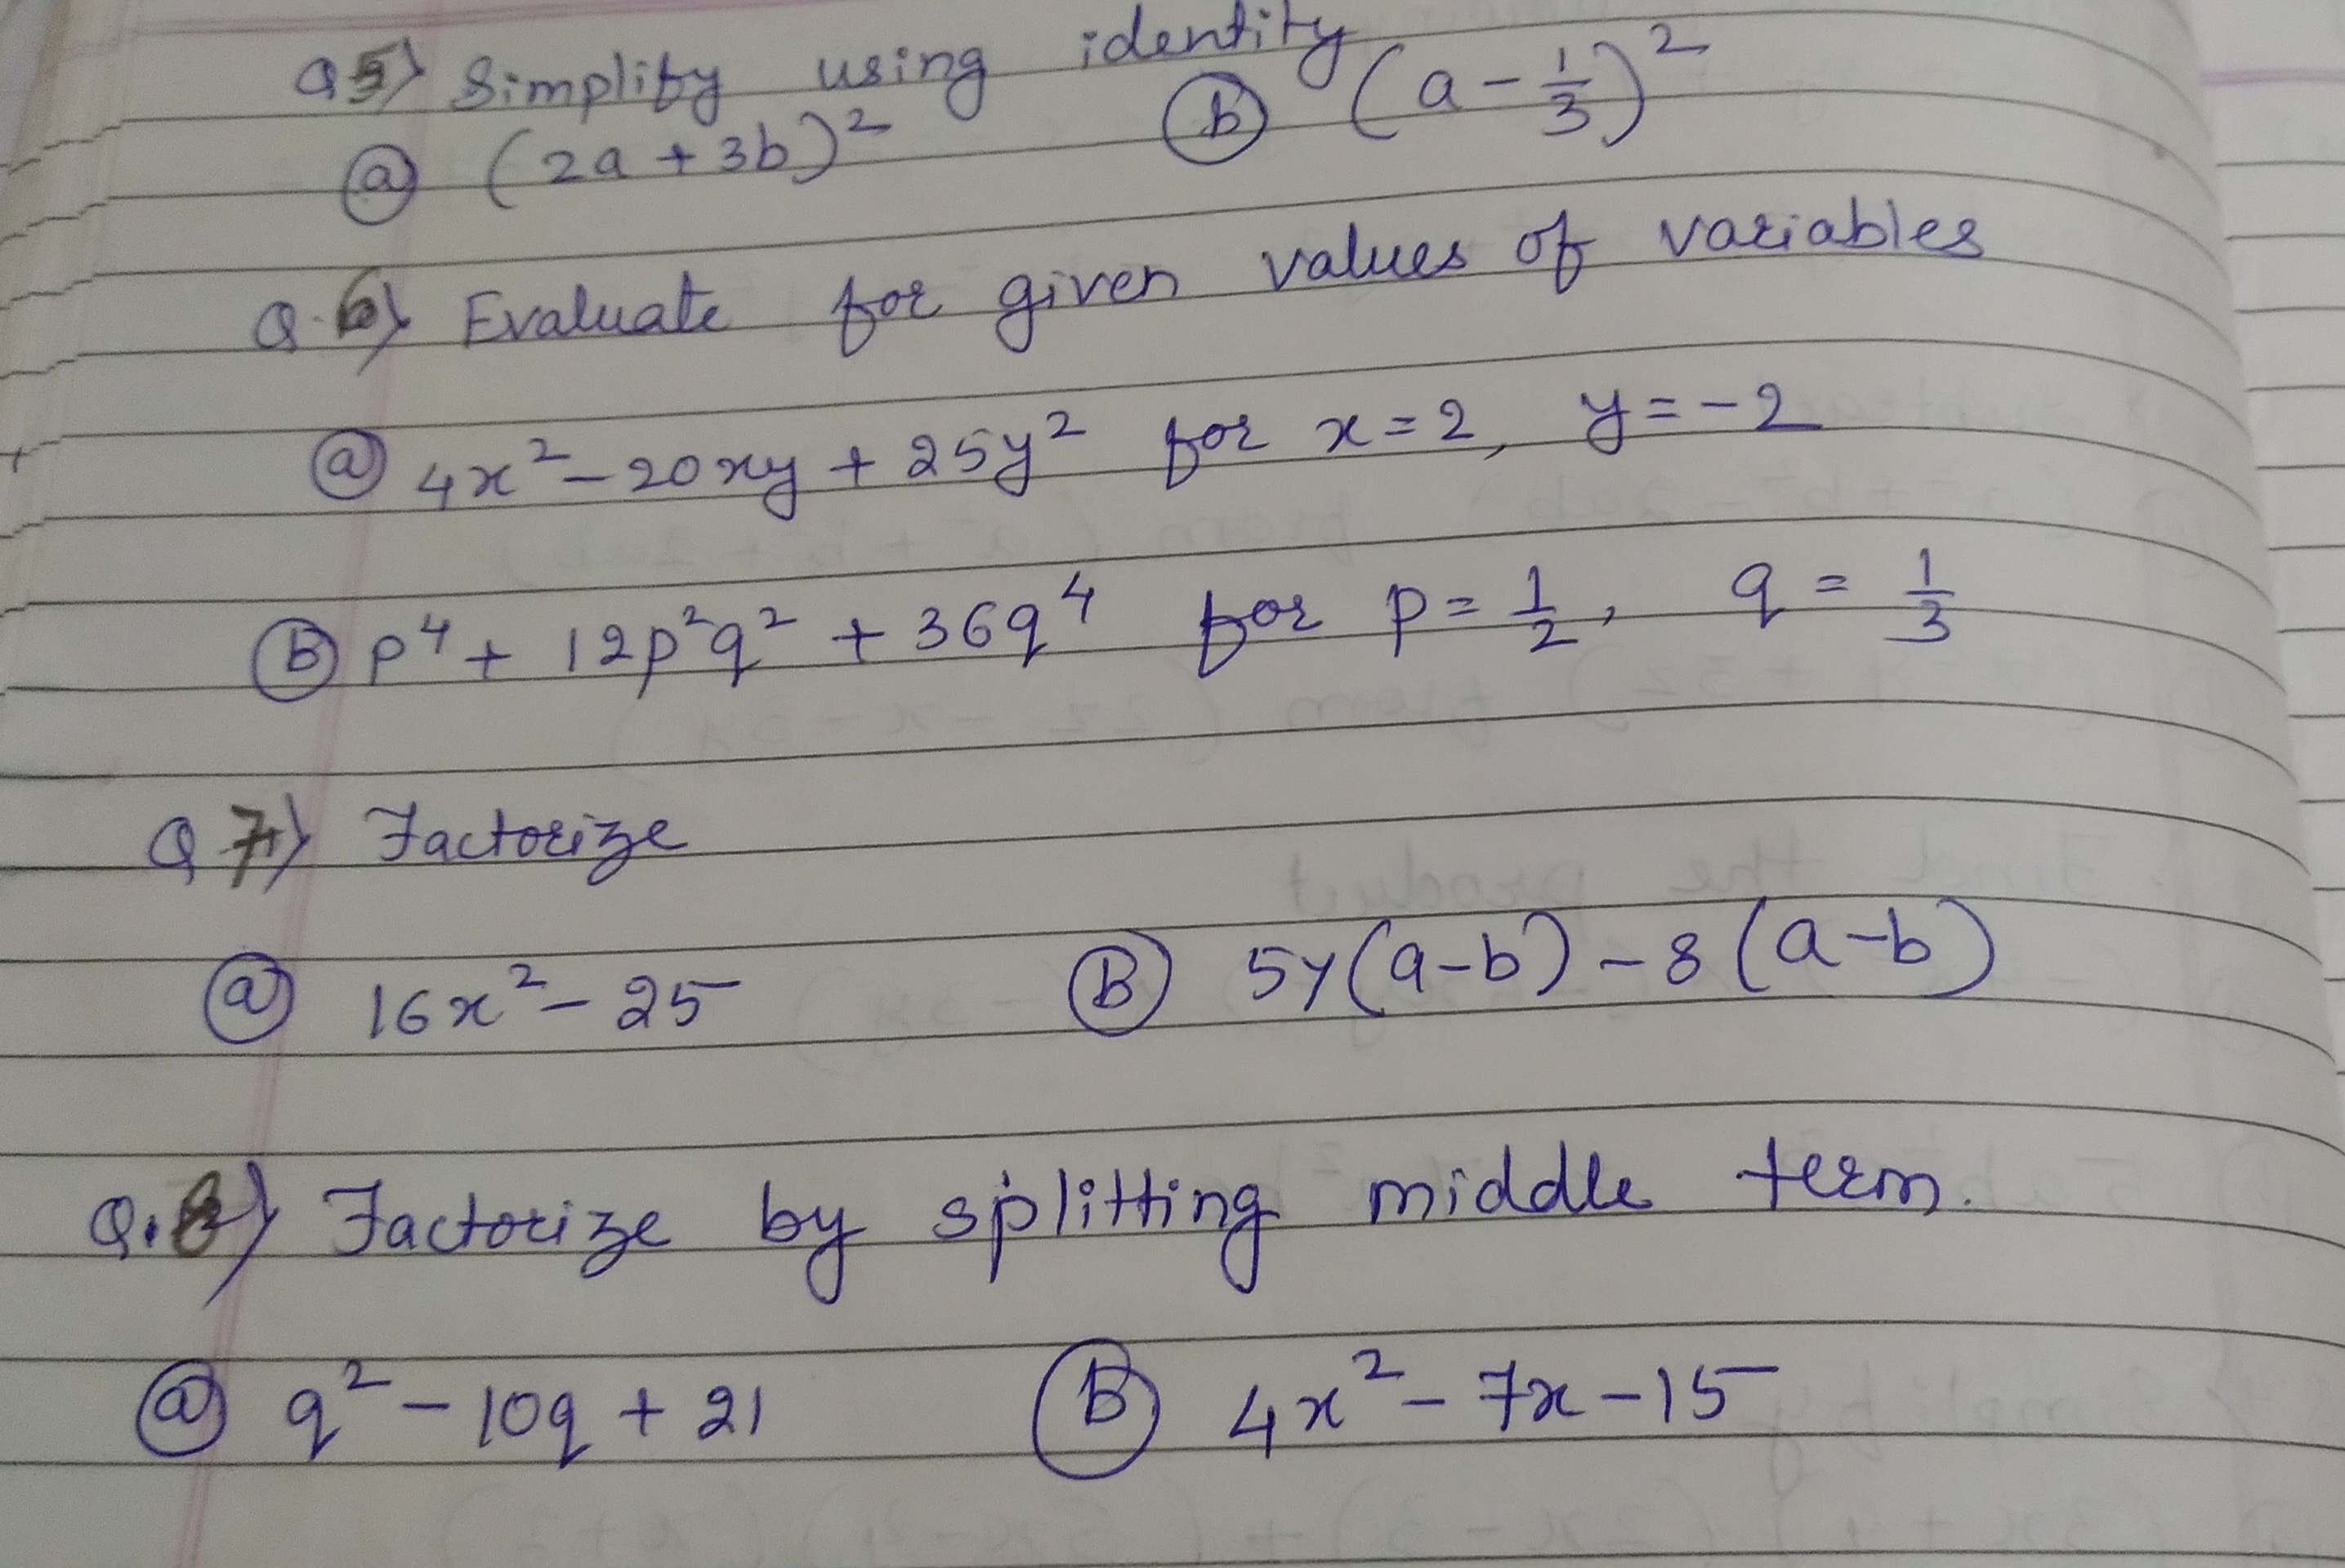 Q5) Simplify using identity
(a) (2a + 3b)² (b) (a - 1/3)²
Q.6) Evaluate for given values of variables
(a) 4x² - 20xy + 25y² for x = 2, y = -2
(B) p⁴ + 12p²q² + 36q⁴ for p = 1/2, q = 1/3
Q7) Factorize
(a) 16x² - 25 (B) 5y(a-b) - 8(a-b)
Q.8) Factorize by splitting middle term.
(a) q² - 10q + 21 (B) 4x² - 7x - 15